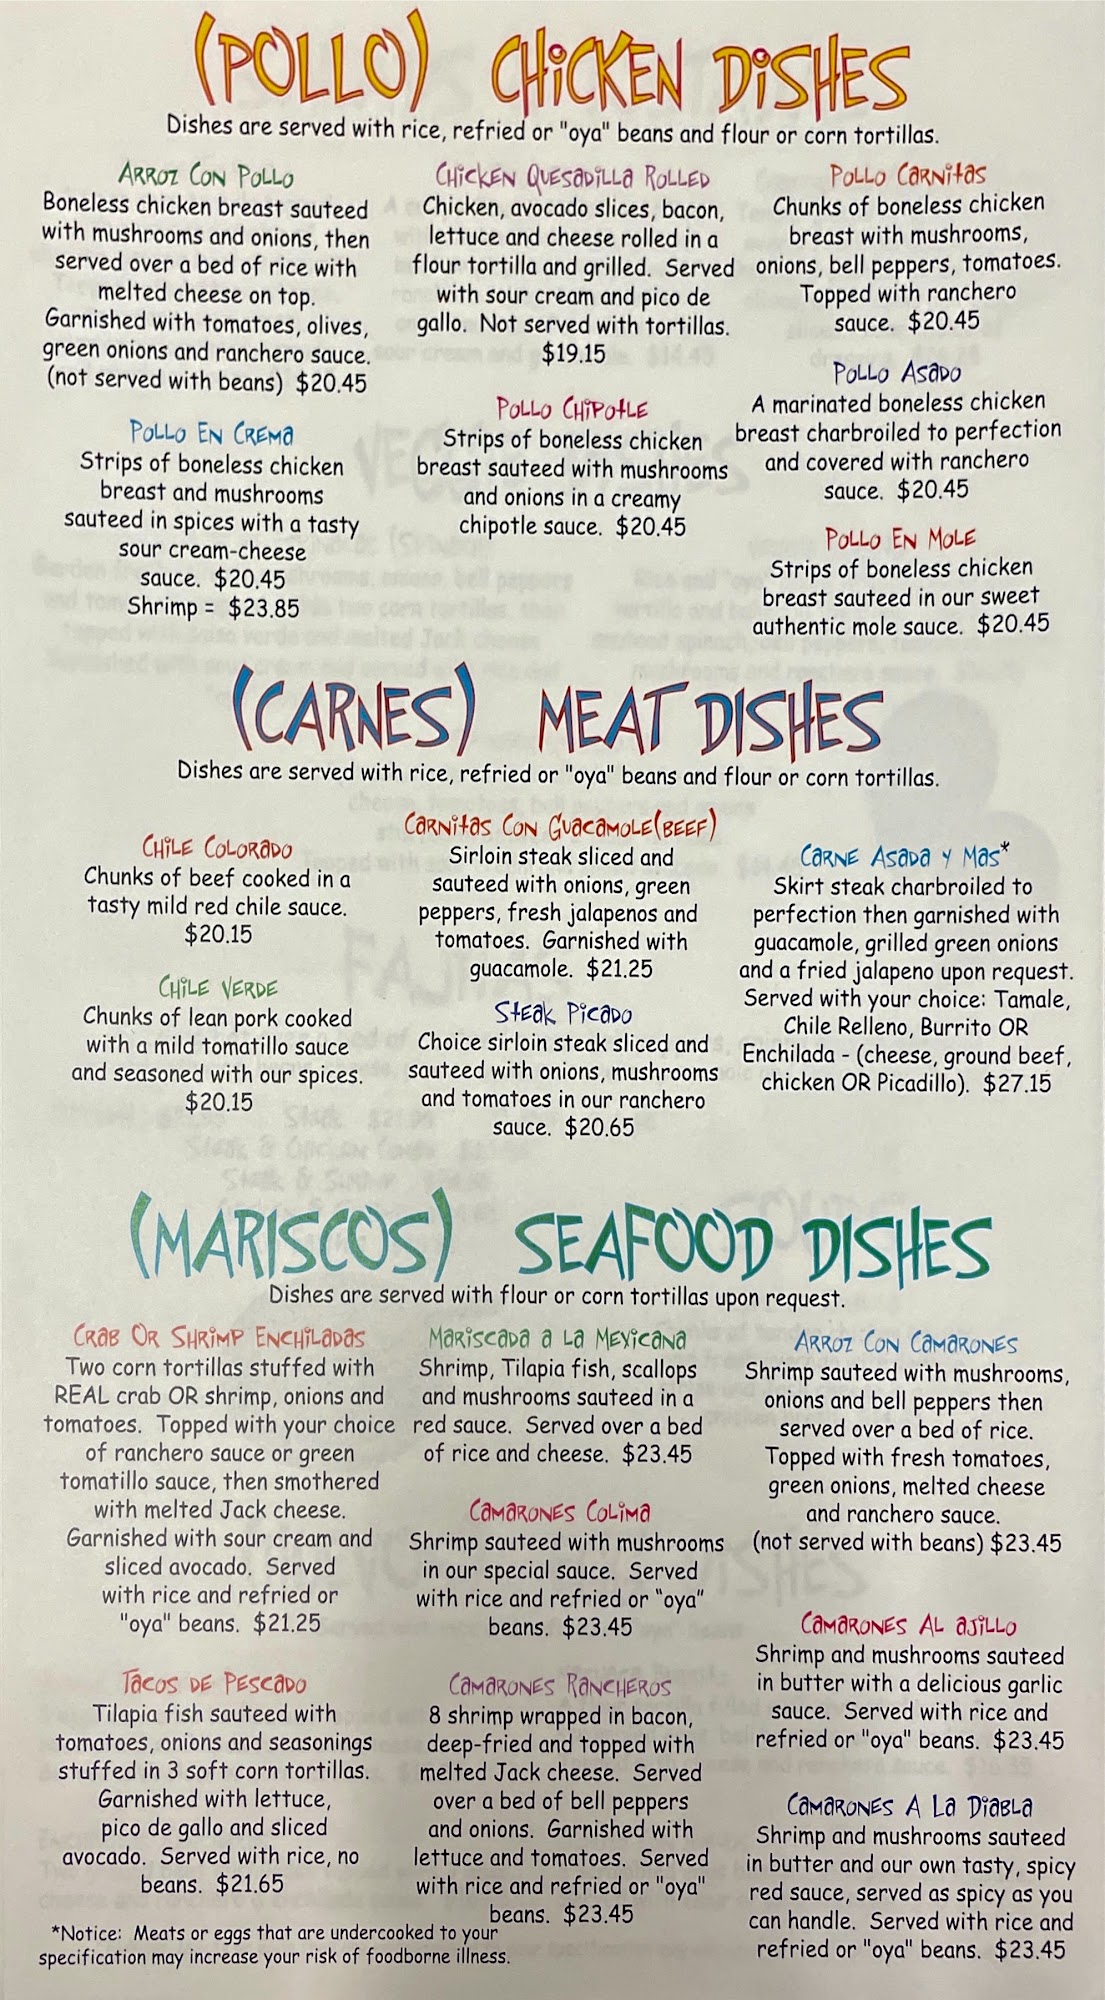 (POLLO) CHICKEN DISHES
Dishes are served with rice, refried or "oya" beans and flour or corn tortillas.
ARROZ CON POLLO
Boneless chicken breast sauteed
with mushrooms and onions, then
served over a bed of rice with
melted cheese on top.
Garnished with tomatoes, olives,
green onions and ranchero sauce.
(not served with beans) $20.45
POLLO EN CREMA
Strips of boneless chicken
breast and mushrooms
sauteed in spices with a tasty
sour cream-cheese
sauce. $20.45
Shrimp = $23.85
CHICKEN QUESADILLA ROLLED
Chicken, avocado slices, bacon,
lettuce and cheese rolled in a
flour tortilla and grilled. Served
with sour cream and pico de
gallo. Not served with tortillas.
$19.15
POLLO CHIPOTLE
Strips of boneless chicken
breast sauteed with mushrooms
and onions in a creamy
chipotle sauce. $20.45
POLLO CARNITAS
Chunks of boneless chicken
breast with mushrooms,
onions, bell peppers, tomatoes.
Topped with ranchero
sauce. $20.45
POLLO ASADO
A marinated boneless chicken
breast charbroiled to perfection
and covered with ranchero
sauce. $20.45
POLLO EN MOLE
Strips of boneless chicken
breast sauteed in our sweet
authentic mole sauce. $20.45
(CARNES) MEAT DISHES
Dishes are served with rice, refried or "oya" beans and flour or corn tortillas.
CHILE COLORADO
Chunks of beef cooked in a
tasty mild red chile sauce.
$20.15
CHILE VERDE
Chunks of lean pork cooked
with a mild tomatillo sauce
and seasoned with our spices.
$20.15
CARNITAS CON GUACAMOLE(BEEF)
Sirloin steak sliced and
sauteed with onions, green
peppers, fresh jalapenos and
tomatoes. Garnished with
guacamole. $21.25
STEAK PICADO
Choice sirloin steak sliced and
sauteed with onions, mushrooms
and tomatoes in our ranchero
sauce. $20.65
CARNE ASADA Y MAS*
Skirt steak charbroiled to
perfection then garnished with
guacamole, grilled green onions
and a fried jalapeno upon request.
Served with your choice: Tamale,
Chile Relleno, Burrito OR
Enchilada - (cheese, ground beef,
chicken OR Picadillo). $27.15
(MARISCOS) SEAFOOD DISHES
Dishes are served with flour or corn tortillas upon request.
CRAB OR SHRIMP ENCHILADAS
Two corn tortillas stuffed with
REAL crab OR shrimp, onions and
tomatoes. Topped with your choice
of ranchero sauce or green
tomatillo sauce, then smothered
with melted Jack cheese.
Garnished with sour cream and
sliced avocado. Served
with rice and refried or
"oya" beans. $21.25
TACOS DE PESCADO
Tilapia fish sauteed with
tomatoes, onions and seasonings
stuffed in 3 soft corn tortillas.
Garnished with lettuce,
pico de gallo and sliced
avocado. Served with rice, no
beans. $21.65
MARISCADA A LA MEXICANA
Shrimp, Tilapia fish, scallops
and mushrooms sauteed in a
red sauce. Served over a bed
of rice and cheese. $23.45
CAMARONES COLIMA
Shrimp sauteed with mushrooms
in our special sauce. Served
with rice and refried or "oya"
beans. $23.45
CAMARONES RANCHEROS
8 shrimp wrapped in bacon,
deep-fried and topped with
melted Jack cheese. Served
over a bed of bell peppers
and onions. Garnished with
lettuce and tomatoes. Served
with rice and refried or "oya"
beans. $23.45
ARROZ CON CAMARONES
Shrimp sauteed with mushrooms,
onions and bell peppers then
served over a bed of rice.
Topped with fresh tomatoes,
green onions, melted cheese
and ranchero sauce.
(not served with beans) $23.45
CAMARONES AL AJILLO
Shrimp and mushrooms sauteed
in butter with a delicious garlic
sauce. Served with rice and
refried or "oya" beans. $23.45
CAMARONES A LA DIABLA
Shrimp and mushrooms sauteed
in butter and our own tasty, spicy
red sauce, served as spicy as you
can handle. Served with rice and
refried or "oya" beans. $23.45
*Notice: Meats or eggs that are undercooked to your
specification may increase your risk of foodborne illness.